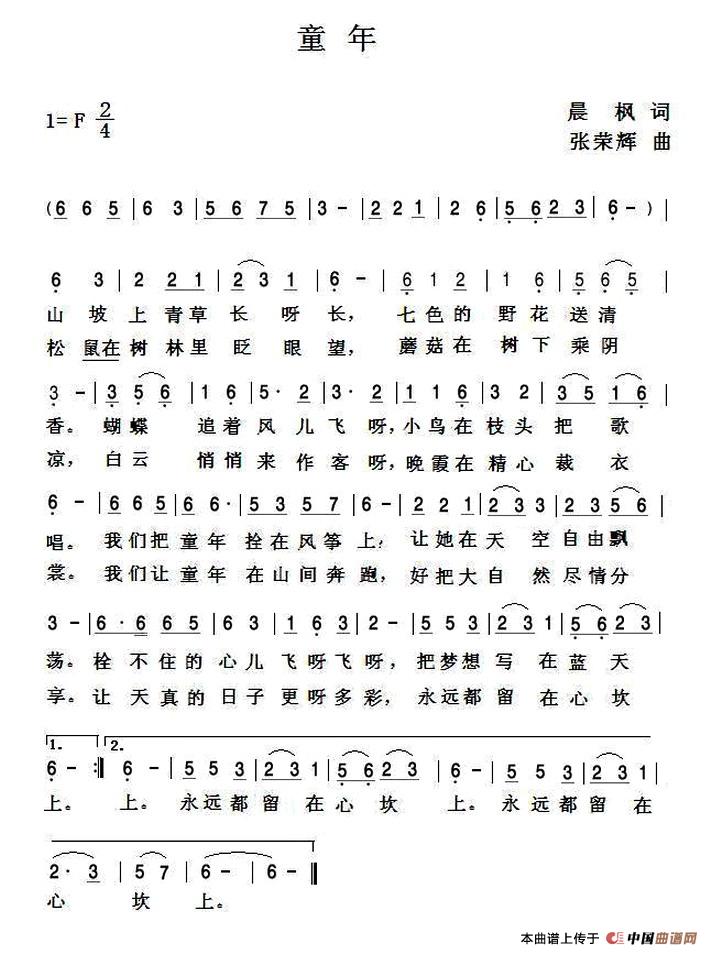 童 年
1= F 2/4
晨 枫 词
张荣辉 曲
( 6 6 5 | 6 3 | 5 6 7 5 | 3 - | 2 2 1 | 2 6 | 5 6 2 3 | 6 - ) |
6 3 | 2 2 1 | 2 3 1 | 6 - | 6 1 2 | 1 6 | 5 6 5 |
山 坡 上 青 草 长 呀 长， 七 色 的 野 花 送 清
松 鼠在 树 林 里 眨 眼 望， 蘑 菇 在 树 下 乘 阴
3 - | 3 5 6 | 1 6 | 5· 2 | 3· 2 | 1 1 6 | 3 2 | 3 5 1 6 |
香。 蝴蝶 追着 风 儿 飞 呀，小 鸟 在 枝 头 把 歌
凉， 白云 悄悄 来 作 客 呀，晚 霞 在 精 心 裁 衣
6 - | 6 6 5 | 6 6· | 5 3 5 7 | 6 - | 2 2 1 | 2 3 3 | 2 3 5 6 |
唱。 我们把 童年 拴在风筝 上， 让她在 天 空 自由飘
裳。 我们让 童年 在山间奔 跑， 好把大 自 然 尽情分
3 - | 6· 6 6 5 | 6 3 | 1 6 3 | 2 - | 5 5 3 | 2 3 1 | 5 6 2 3 |
荡。拴 不 住 的 心 儿 飞 呀 飞 呀， 把 梦 想 写 在 蓝 天
享。让 天 真 的 日 子 更 呀 多 彩， 永 远 都 留 在 心 坎
1. 2.
6 - :‖ 6 - | 5 5 3 | 2 3 1 | 5 6 2 3 | 6 - | 5 5 3 | 2 3 1 |
上。 上。 永 远 都 留 在 心 坎 上。 永 远 都 留 在
2· 3 | 5 7 | 6 - | 6 - ‖
心 坎 上。
本曲谱上传于 中国曲谱网